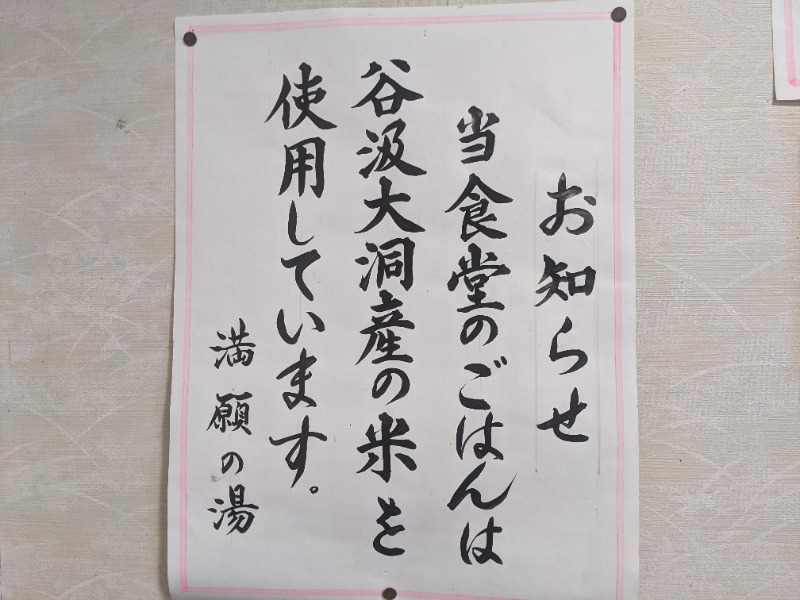 お知らせ
当食堂のごはんは
谷汲大洞産の米を
使用しています。
満願の湯